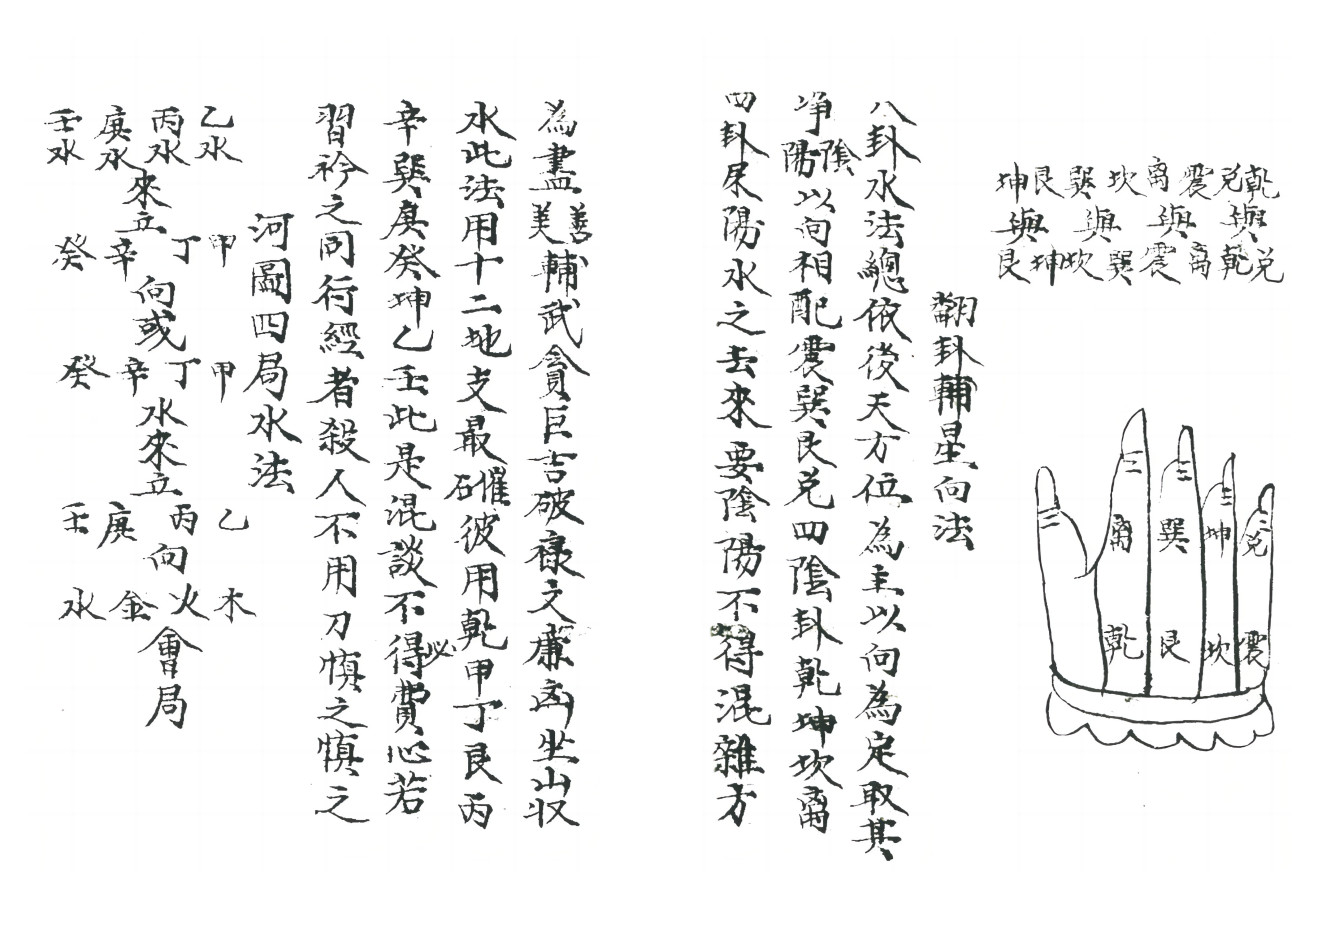 乾兌與兌乾
震離與離震
坎巽與巽坎
艮坤與坤艮
離 巽 坤 兌
乾 艮 坎 震
翻卦輔星向法
八卦水法總依後天方位為主以向為定取其
净陰陽以向相配震巽艮兌四陰卦乾坤坎离
四卦屎陽水之去來要陰陽不得混雜方
為盡善美輔武貪巨吉破祿文廉凶坐山収
水此法用十二地支最確彼用乾甲丁艮丙
辛巽庚癸坤乙壬此是混談不得必費心若
習衿之同行經者殺人不用刀慎之慎之
河圖四局水法
乙水 丙水 庚水 壬水
來立
甲 丁 辛 癸
向或
甲 丁 辛 癸
水來立
乙 丙 庚 壬
向
木 火 金 水
會局